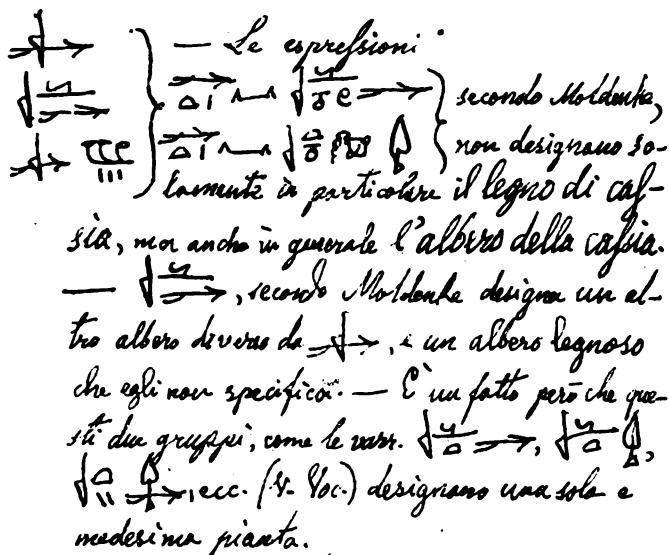 — Le espressioni
secondo Moldenke,
non designano so-
lamente in particolare il legno di caſ-
sia, ma anche in generale l'albero della caſsia.
— , secondo Moldenke designa un al-
tro albero diverso da , e un albero legnoso
che egli non specifica. — È un fatto però che que-
sti due gruppi, come le varr. , ,
, ecc. (V. Voc.) designano una sola e
medesima pianta.